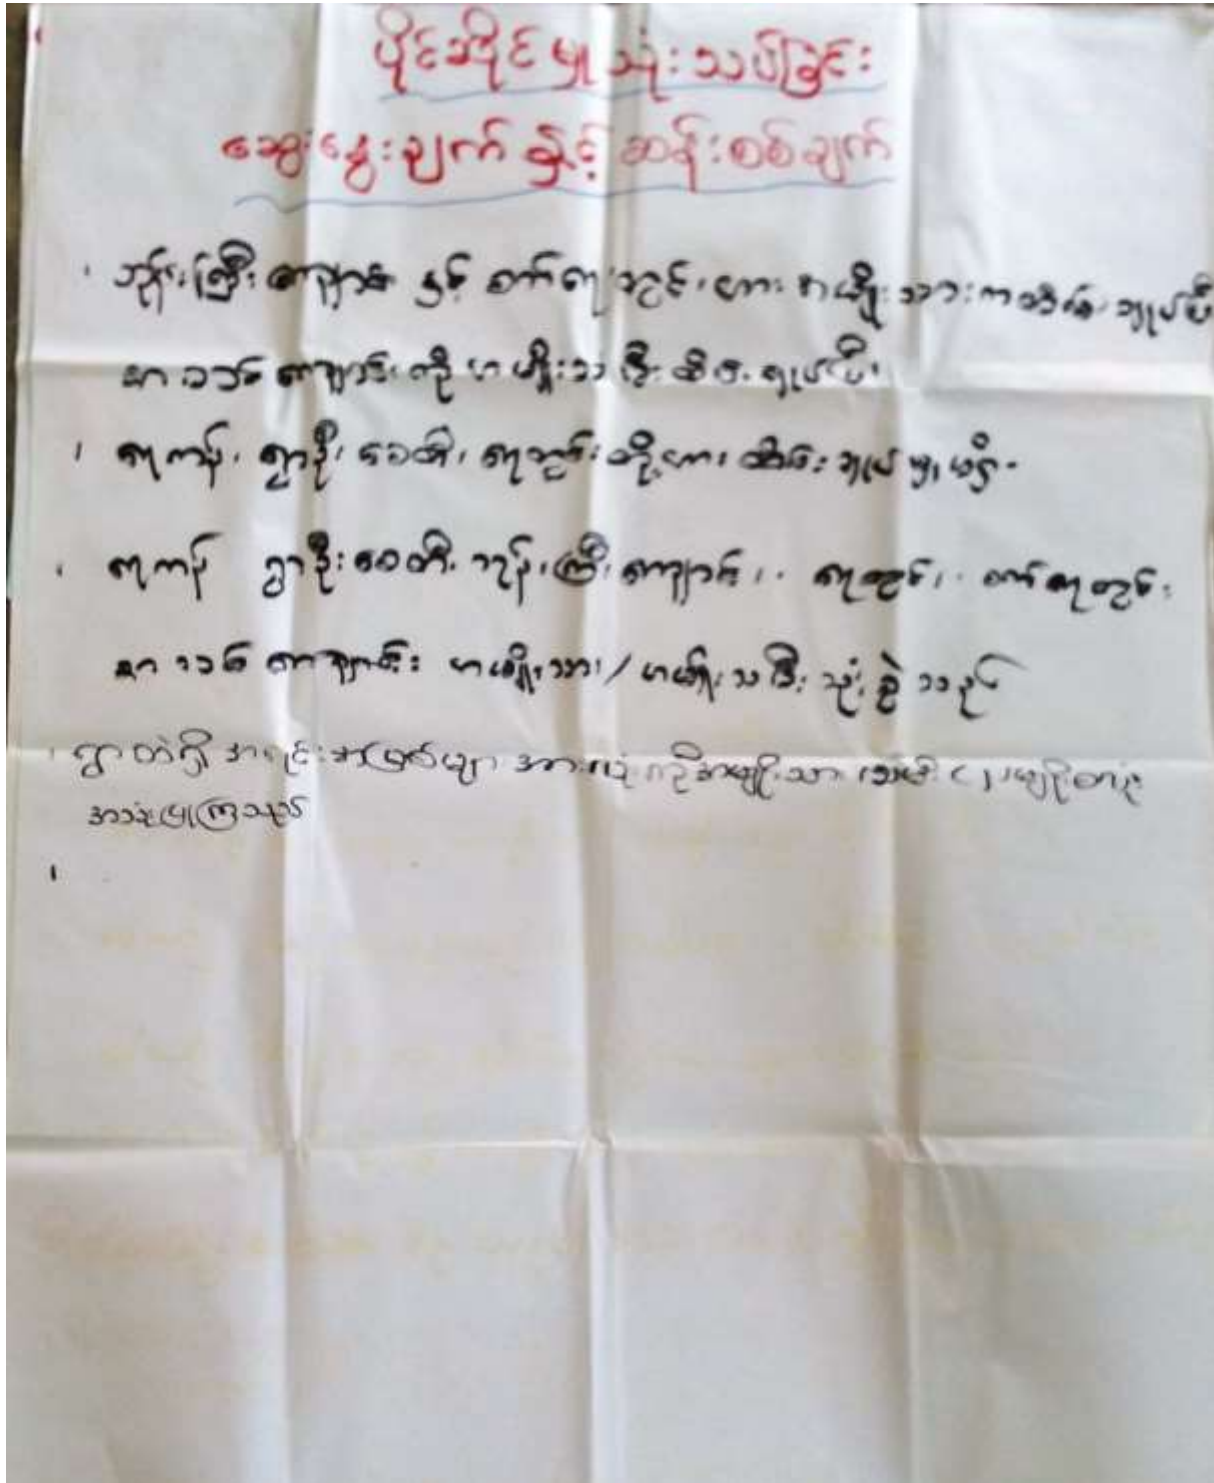 ပိုင်ဆိုင်မှု သုံးသပ်ခြင်း
ဆွေးနွေးချက် နှင့် ဆန်းစစ်ချက်
ဘုန်းကြီးကျောင်း နှင့် စက်ရေတွင်းဟား အမျိုးသားကထိန်းချုပ်ပီး
စာသင်ကျောင်းကို အမျိုးသမီးထိန်းချုပ်ပီး
ရေကန်၊ ရွာဦးစေတီ၊ ရေတွင်းတို့ဟား ထိန်းချုပ်မှုမရှိ
ရေကန် ရွာဦးစေတီ ဘုန်းကြီးကျောင်း ရေတွင်း စက်ရေတွင်း
စာသင်ကျောင်း အမျိုးသား/အမျိုးသမီး သုံးစွဲသည်
ရွာထဲရှိ အရင်းအမြစ်များ အားလုံးကိုအမျိုးသား
အသုံးပြုကြသည်